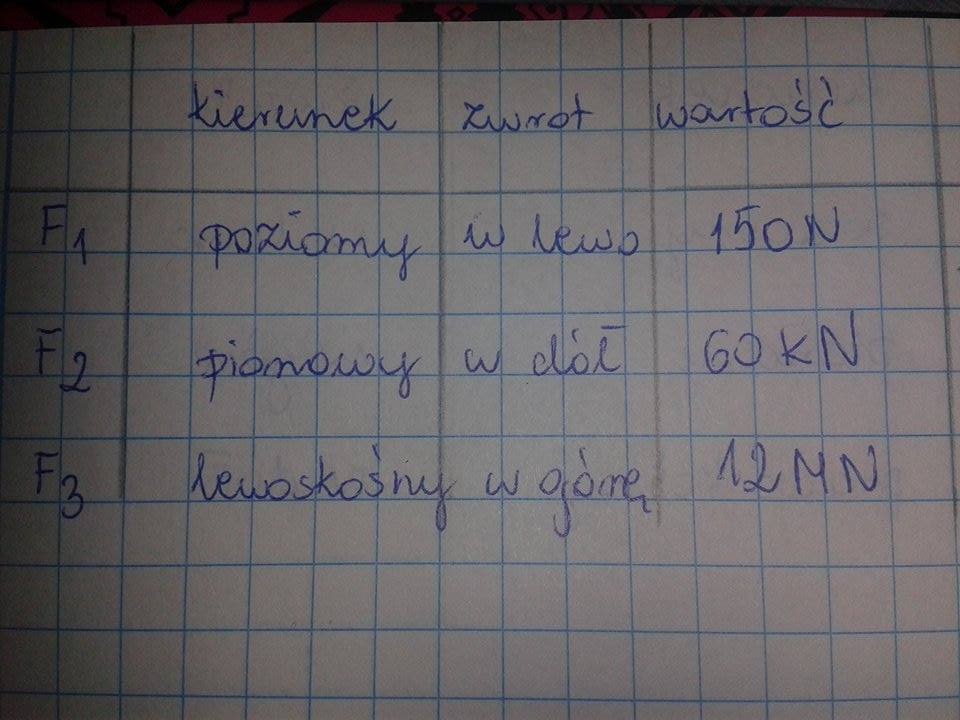 kierunek zwrot wartość
F1 poziomy w lewo 150N
F2 pionowy w dół 60 kN
F3 lewoskośny w górę 12 MN